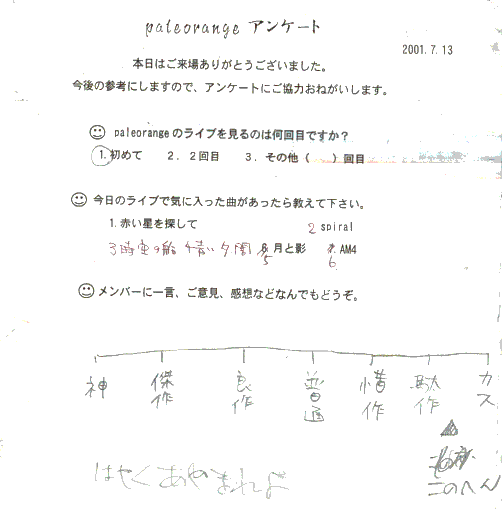 paleorange アンケート
2001. 7. 13
本日はご来場ありがとうございました。
今後の参考にしますので、アンケートにご協力おねがいします。
paleorangeのライブを見るのは何回目ですか？
1. 初めて 2. 2回目 3. その他 ( ) 回目
今日のライブで気に入った曲があったら教えて下さい。
1. 赤い星を探して 2 spiral
3 時空の船 4 青い夕闇 5 月と影 6. AM4
メンバーに一言、ご意見、感想などなんでもどうぞ。
神 傑作 良作 普通 惜作 駄作 カス
このへん
はやくあやまれよ